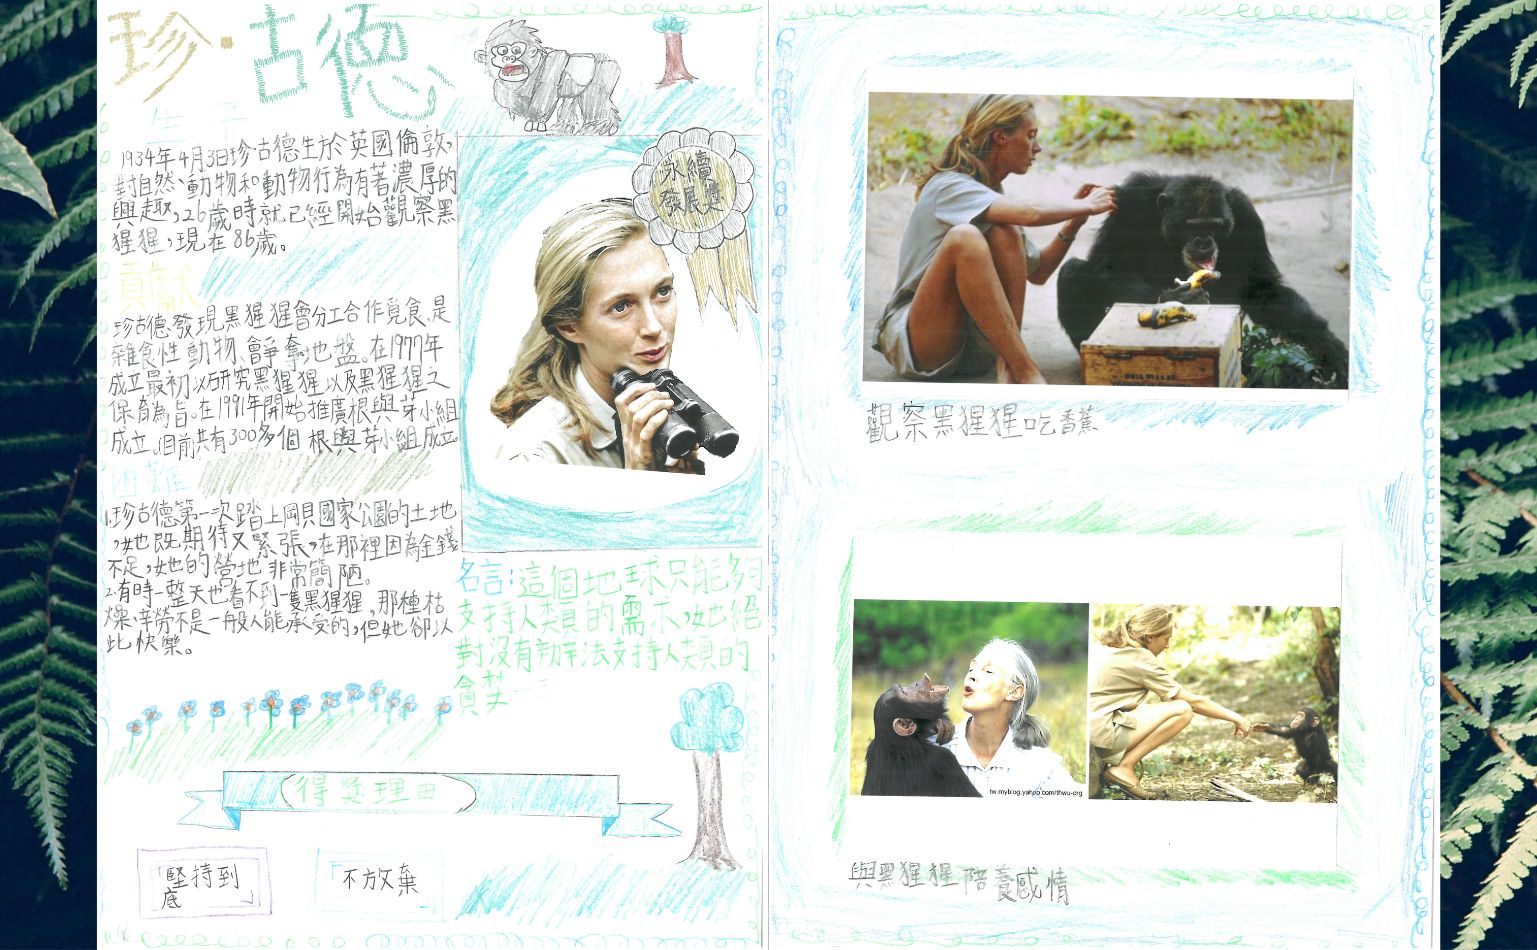 珍·古德
生平
1934年4月3日珍古德生於英國倫敦，
對自然、動物和動物行為有著濃厚的
興趣，26歲時就已經開始觀察黑
猩猩，現在86歲。
貢獻
珍古德發現黑猩猩會分工合作覓食、是
雜食性動物、會爭奪地盤。在1977年
成立最初以研究黑猩猩以及黑猩猩之
保育為旨。在1991年開始推廣根與芽小組
成立。目前共有300多個根與芽小組成立。
困難
1.珍古德第一次踏上岡貝國家公園的土地
，她既期待又緊張，在那裡因為金錢
不足，她的營地非常簡陋。
2.有時一整天也看不到一隻黑猩猩，那種枯
燥、辛勞不是一般人能承受的，但她卻以
此快樂。
永續
發展獎
名言：這個地球只能夠
支持人類的需求，她絕
對沒有辦法支持人類的
貪婪
得獎理由
「堅持到
底」
不放棄
觀察黑猩猩吃香蕉
tw.myblog.yahoo.com/thwu-org
與黑猩猩陪養感情